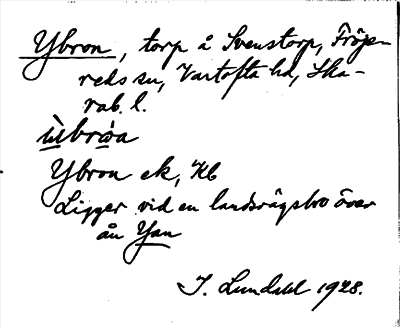 Ybron, torp å Svenstorp, Fröje-
reds sn, Vartofta hd, Ska-
rab. l.
ùbrωa
Ybron ek, Kb
Ligger vid en landsvägsbro över
ån Yan
I. Lundahl 1928.